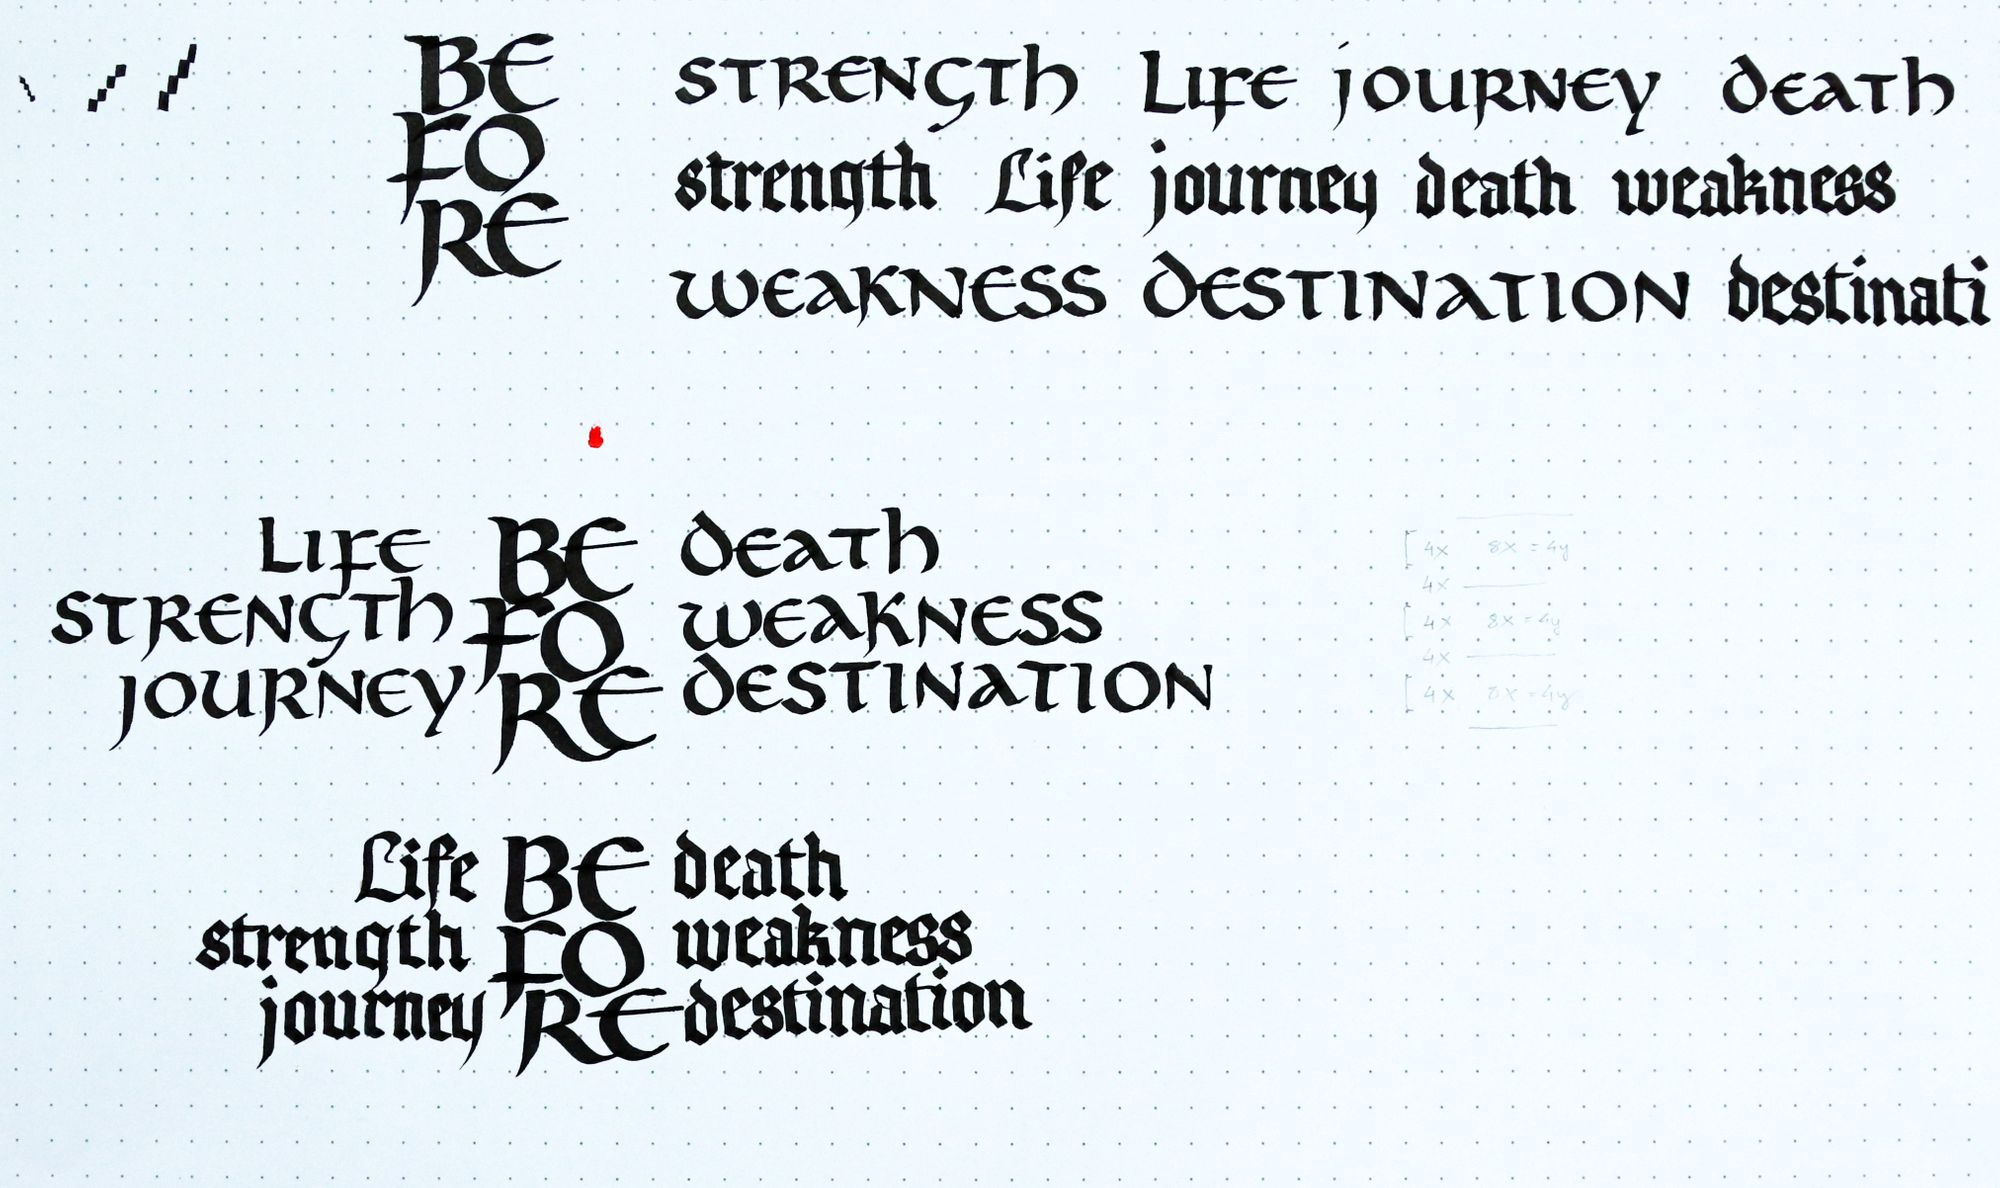 BE
FO
RE
STRENGTH LIFE JOURNEY DEATH
strength Life journey death weakness
WEAKNESS DESTINATION destinati
LIFE BE DEATH
STRENGTH FO WEAKNESS
JOURNEY RE DESTINATION
4x 8x = 4y
4x
4x 8x = 4y
4x
4x 8x = 4y
Life BE death
strength FO weakness
journey RE destination